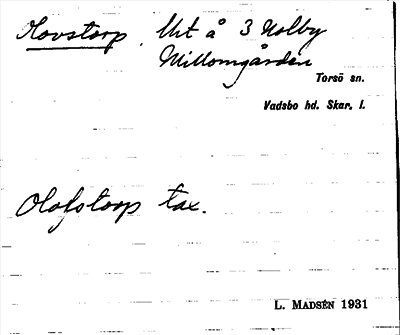 Olovstorp. Utt å 3 Nolby
Millomgården
Torsö sn.
Vadsbo hd. Skar. l.
Olofstorp tax.
L. MADSÉN 1931